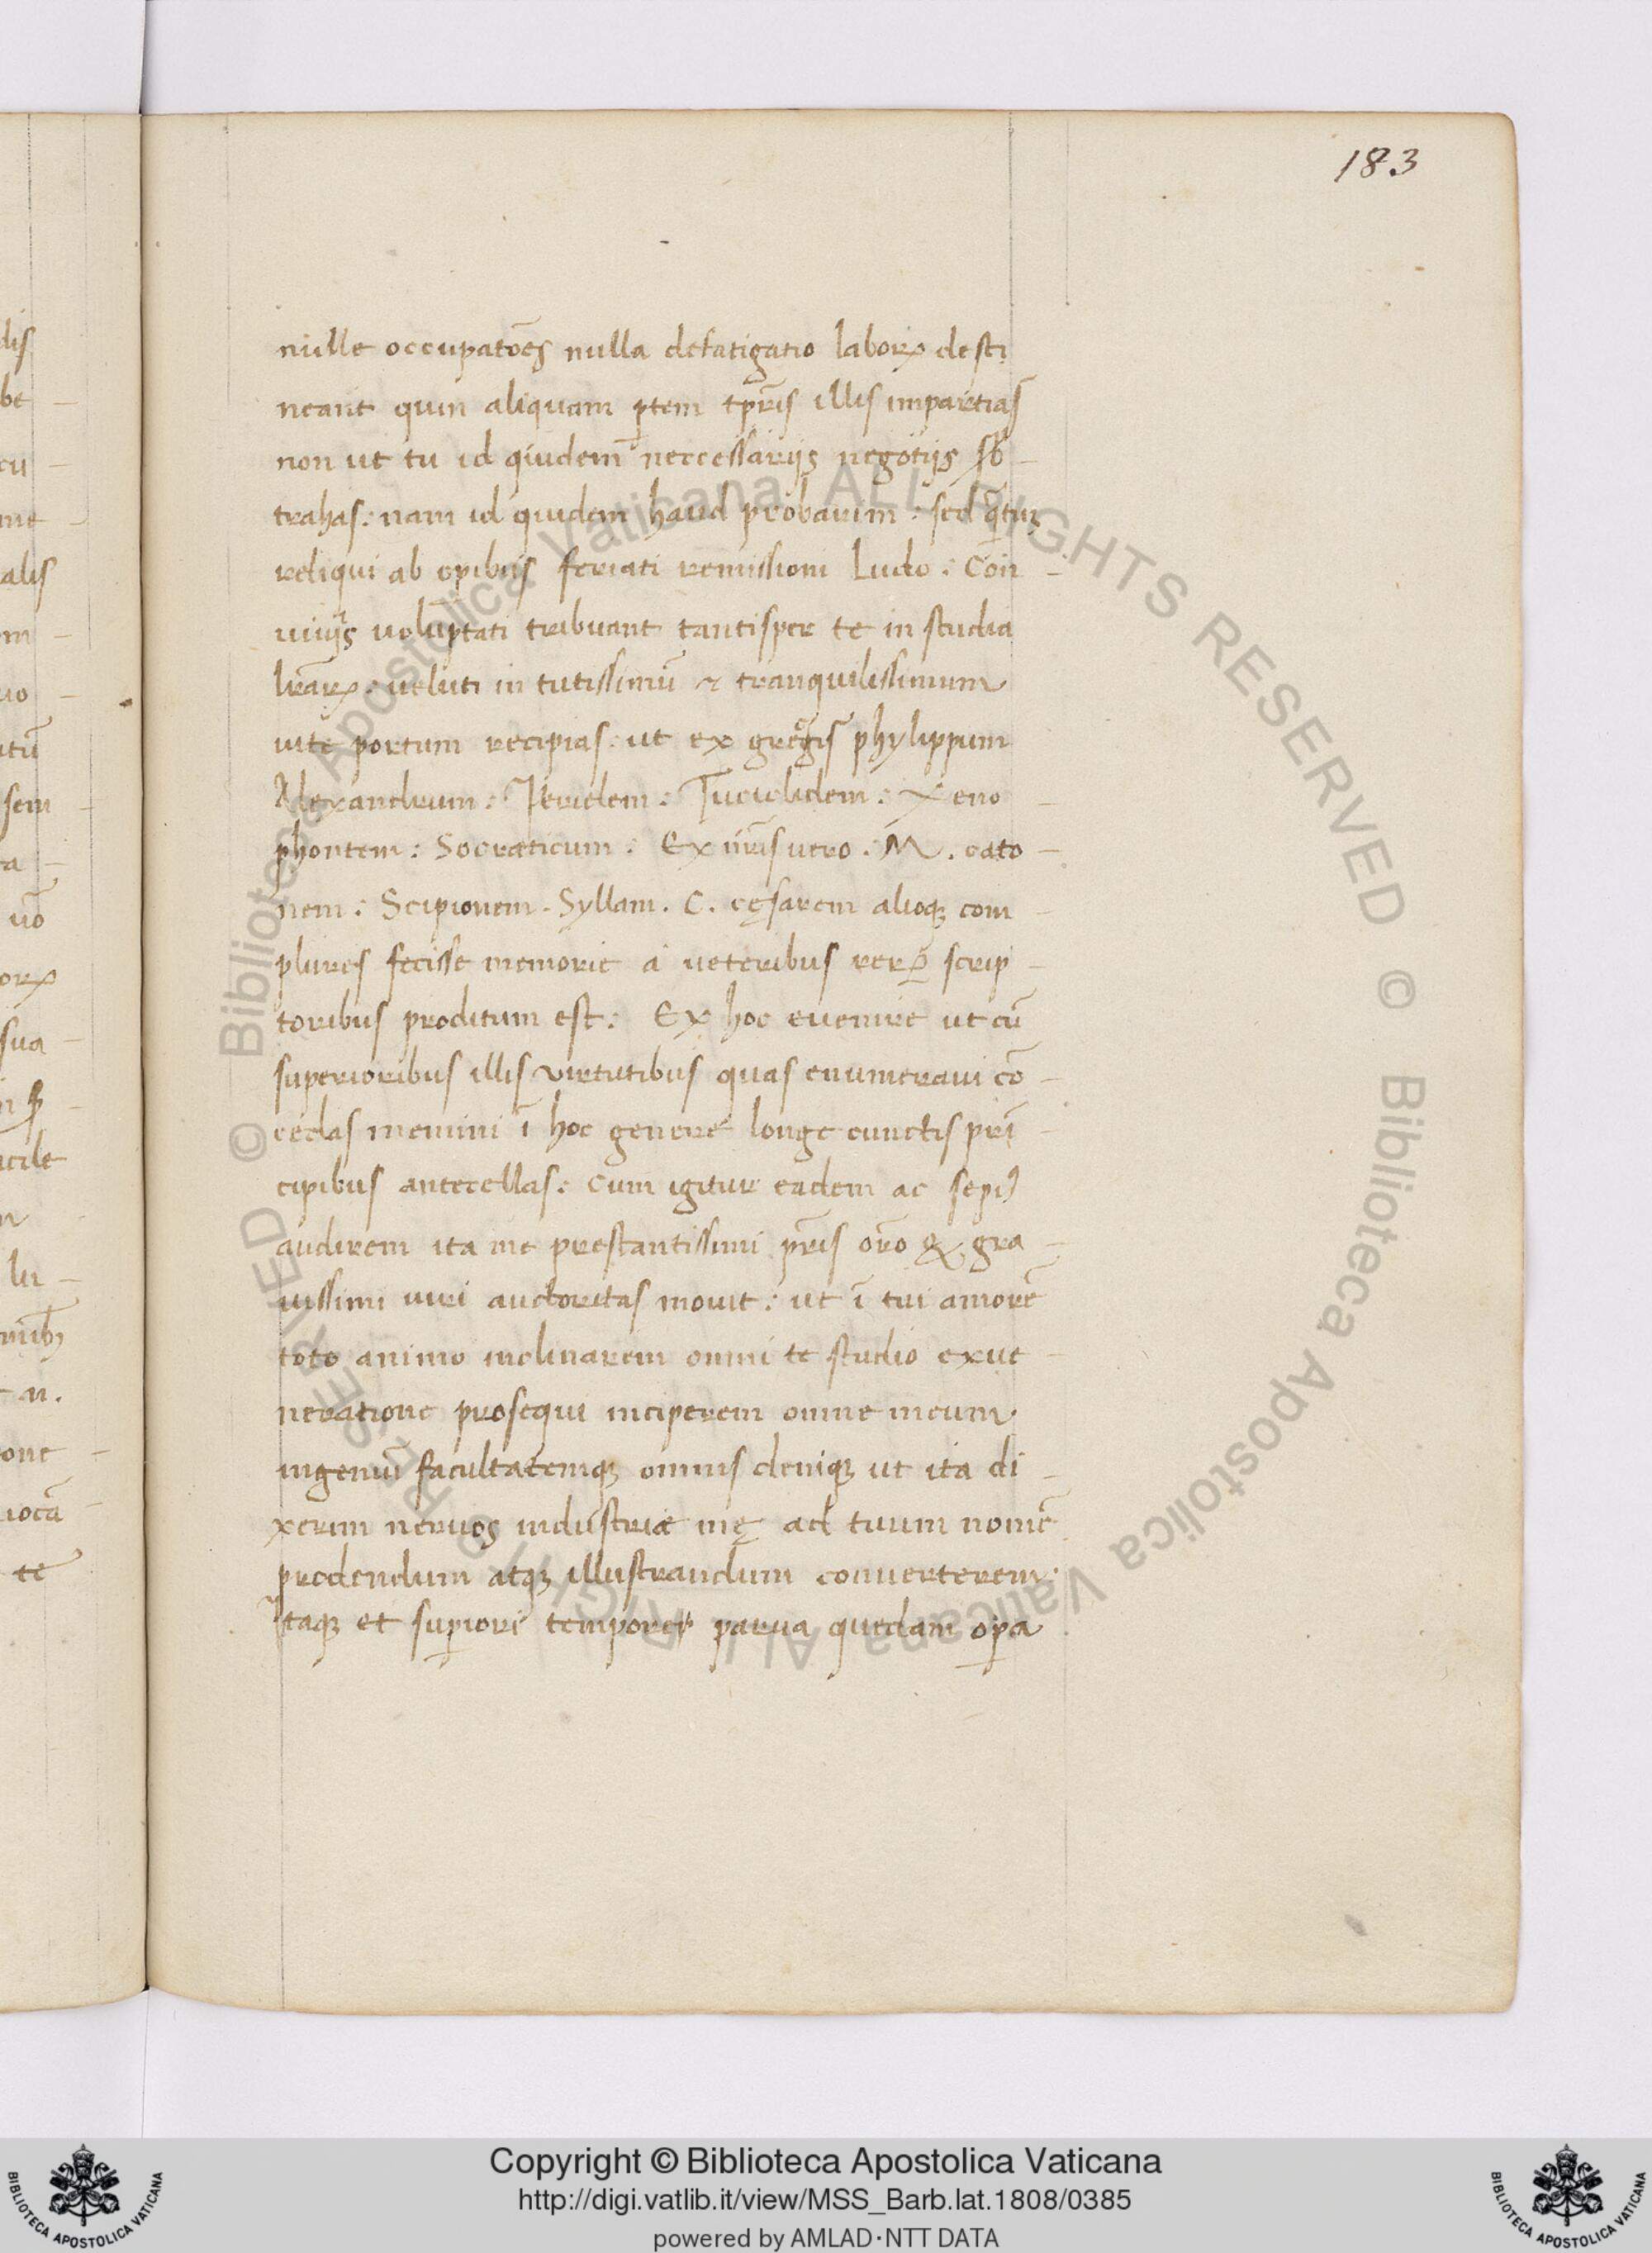 183
nulle occupatōes nulla defatigatio laborꝝ desti
neant quin aliquam ꝑtem tꝑris illis impartias
non ut tu id quidem neccessarijs negotijs sb
trahas: nam id quidem haud probarim: sed
reliqui ab opibus feriati remissioni Ludo: Con
uiuijs voluptati tribuant tantisper te in studia
lrārꝝ: veluti in tutissimū & tranquilissimum
uite portum recipias: ut ex gręcis phylippum
Alexandrum: Periclem: Tucididem: Xeno
phontem: Socraticum: Ex nr̄is uero. M. cato
nem: Scipionem. Syllam. C. cęsarem alioqꝫ com
plures fecisse memorie a ueteribus rerꝝ scrip
toribus proditum est: Ex hoc euenire ut cū
superioribus illis virtutibus quas enumeraui cō
cedas memini ī hoc genere longe cunctis prī
cipibus antecellas: Cum igitur eadem ac sepiꝰ
audirem ita me prestantissimi pr̄is orō & gra
uissimi uiri auctoritas mouit: ut ī tui amorē
toto animo inclinarem omni te studio exue
neratione prosequi inciperem omne meum
ingeniū facultatemqꝫ omnis deniqꝫ ut ita di
xerim neruos industriae meę ad tuum nomē
prodendum atqꝫ illustrandum conuerterem:
Itaqꝫ et suꝑiore tempore parua quedam oꝑa
dis
be
cu
me
alis
om
uo
utū
sem
ra
uō
orꝝ
sua
acile
lu
n.
one
uocā
te
© Biblioteca Apostolica Vaticana ALL RIGHTS RESERVED © Biblioteca Apostolica Vaticana ALL RIGHTS RESERVED
Copyright © Biblioteca Apostolica Vaticana
http://digi.vatlib.it/view/MSS_Barb.lat.1808/0385
powered by AMLAD·NTT DATA
BIBLIOTECA APOSTOLICA VATICANA
BIBLIOTECA APOSTOLICA VATICANA